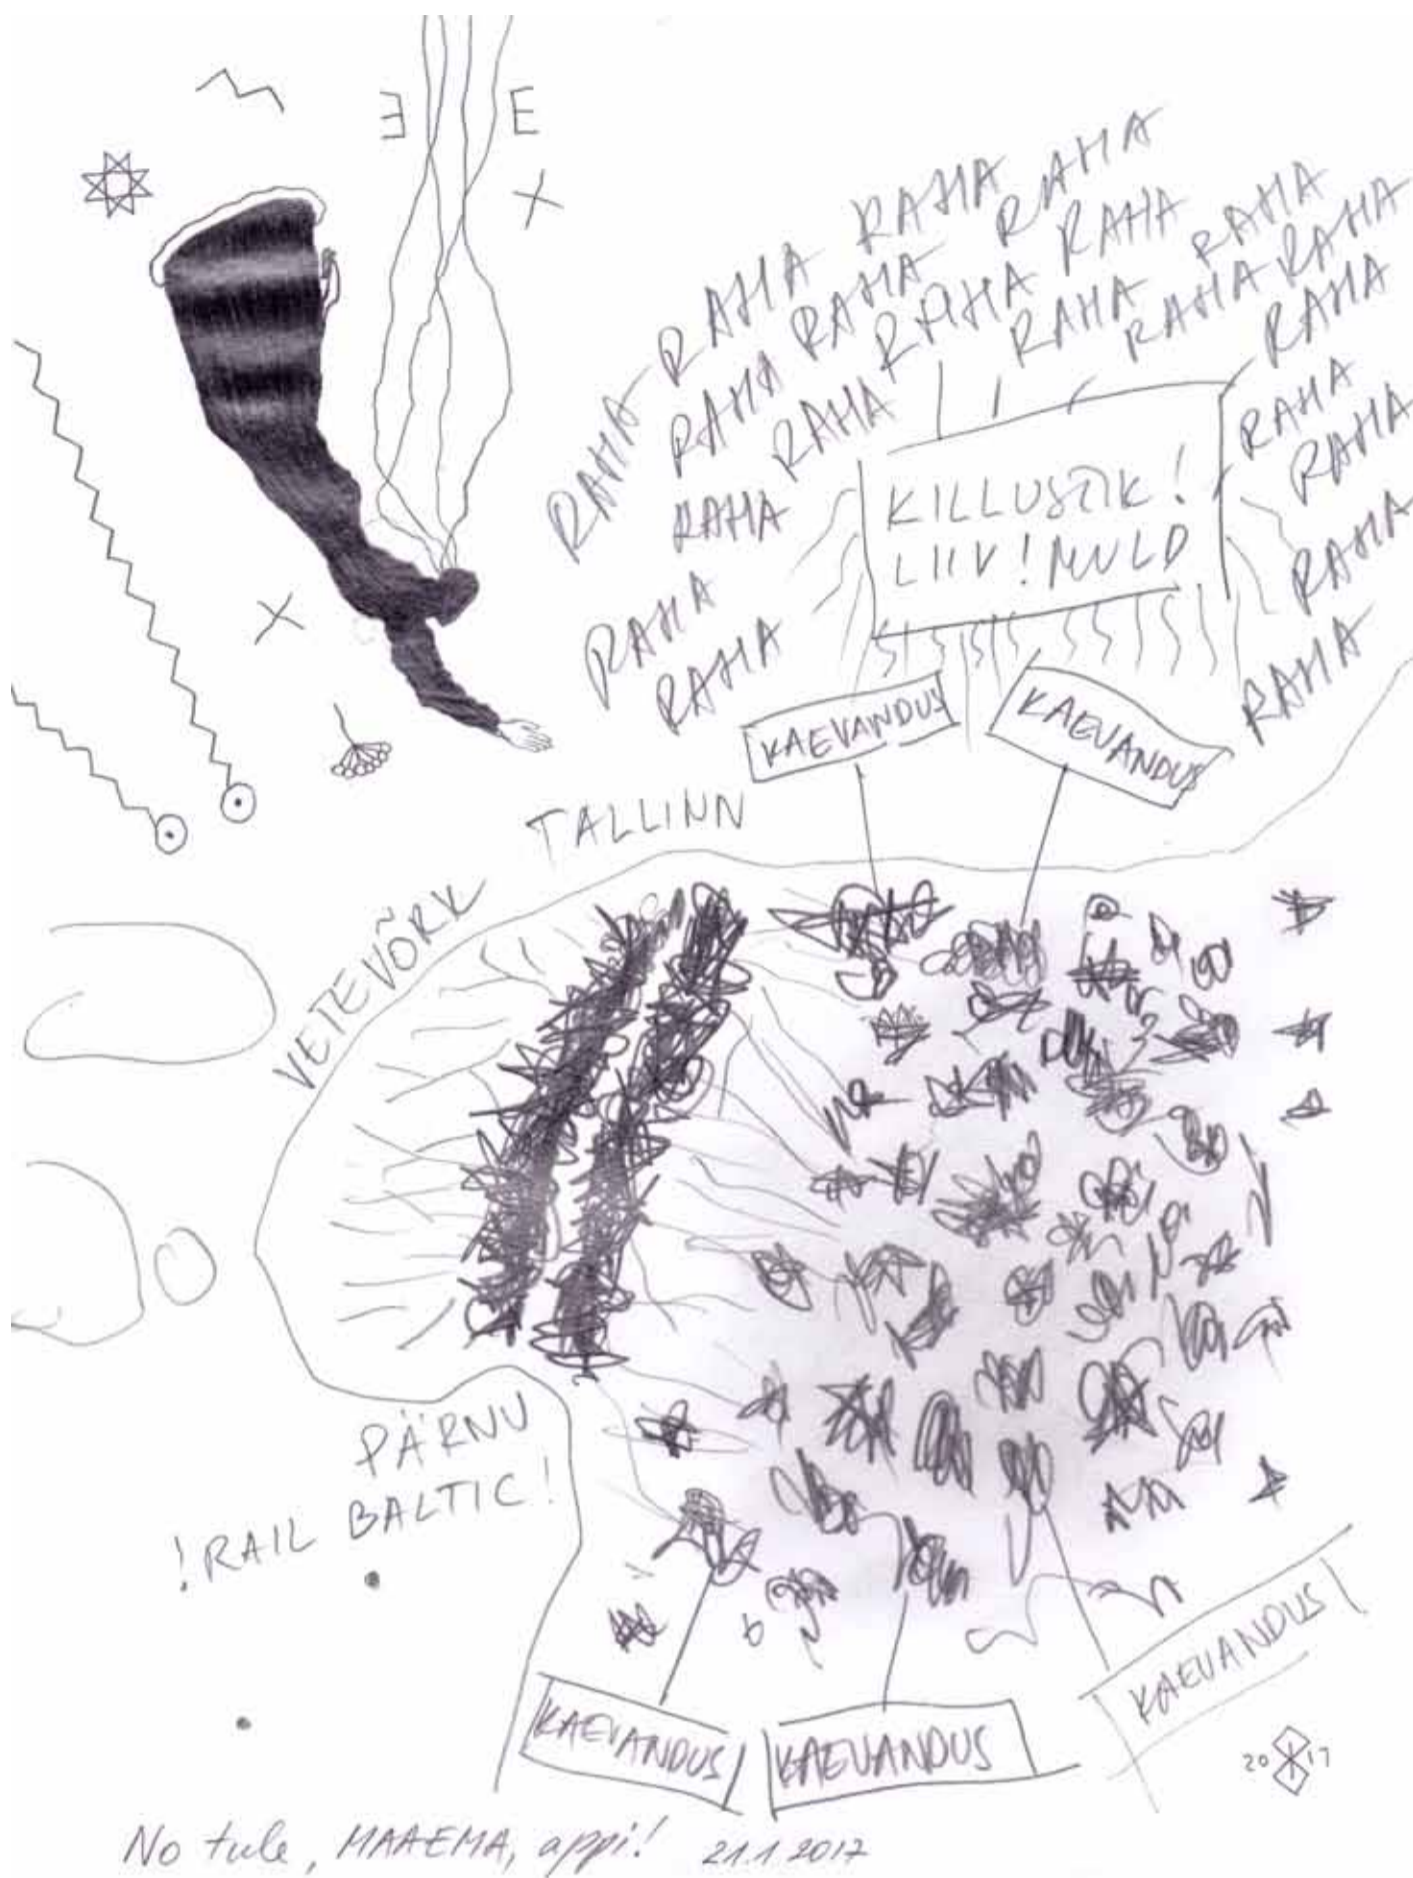 E E
RAHA RAHA RAHA RAHA RAHA
RAHA RAHA RAHA RAHA
RAHA RAHA RAHA RAHA RAHA RAHA
RAHA
RAHA
RAHA
RAHA
RAHA
RAHA
RAHA
RAHA
KILLUSTIK!
LIIV! MULD
KAEVANDUS
KAEVANDUS
TALLINN
VETEVÕRK
PÄRNU
!RAIL BALTIC!
KAEVANDUS
KAEVANDUS
KAEVANDUS
20 17
No tule, MAAEMA, appi! 21.1 2017